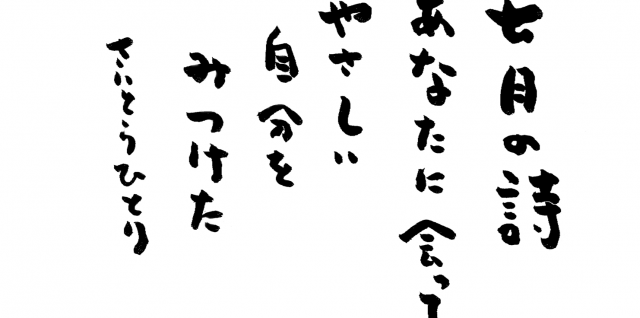 七月の詩
あなたに会って
やさしい
自分を
みつけた
さいとうひとり